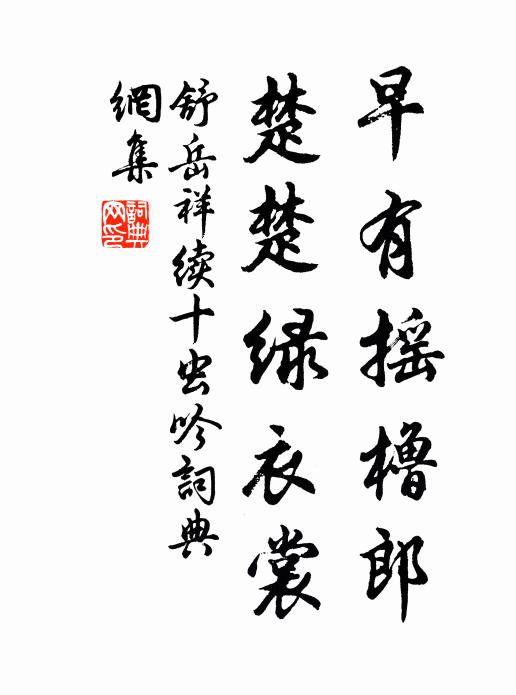 早有摇櫓郎
楚楚緑衣裳
舒岳祥续十虫吟詞典
網集
詞典网印